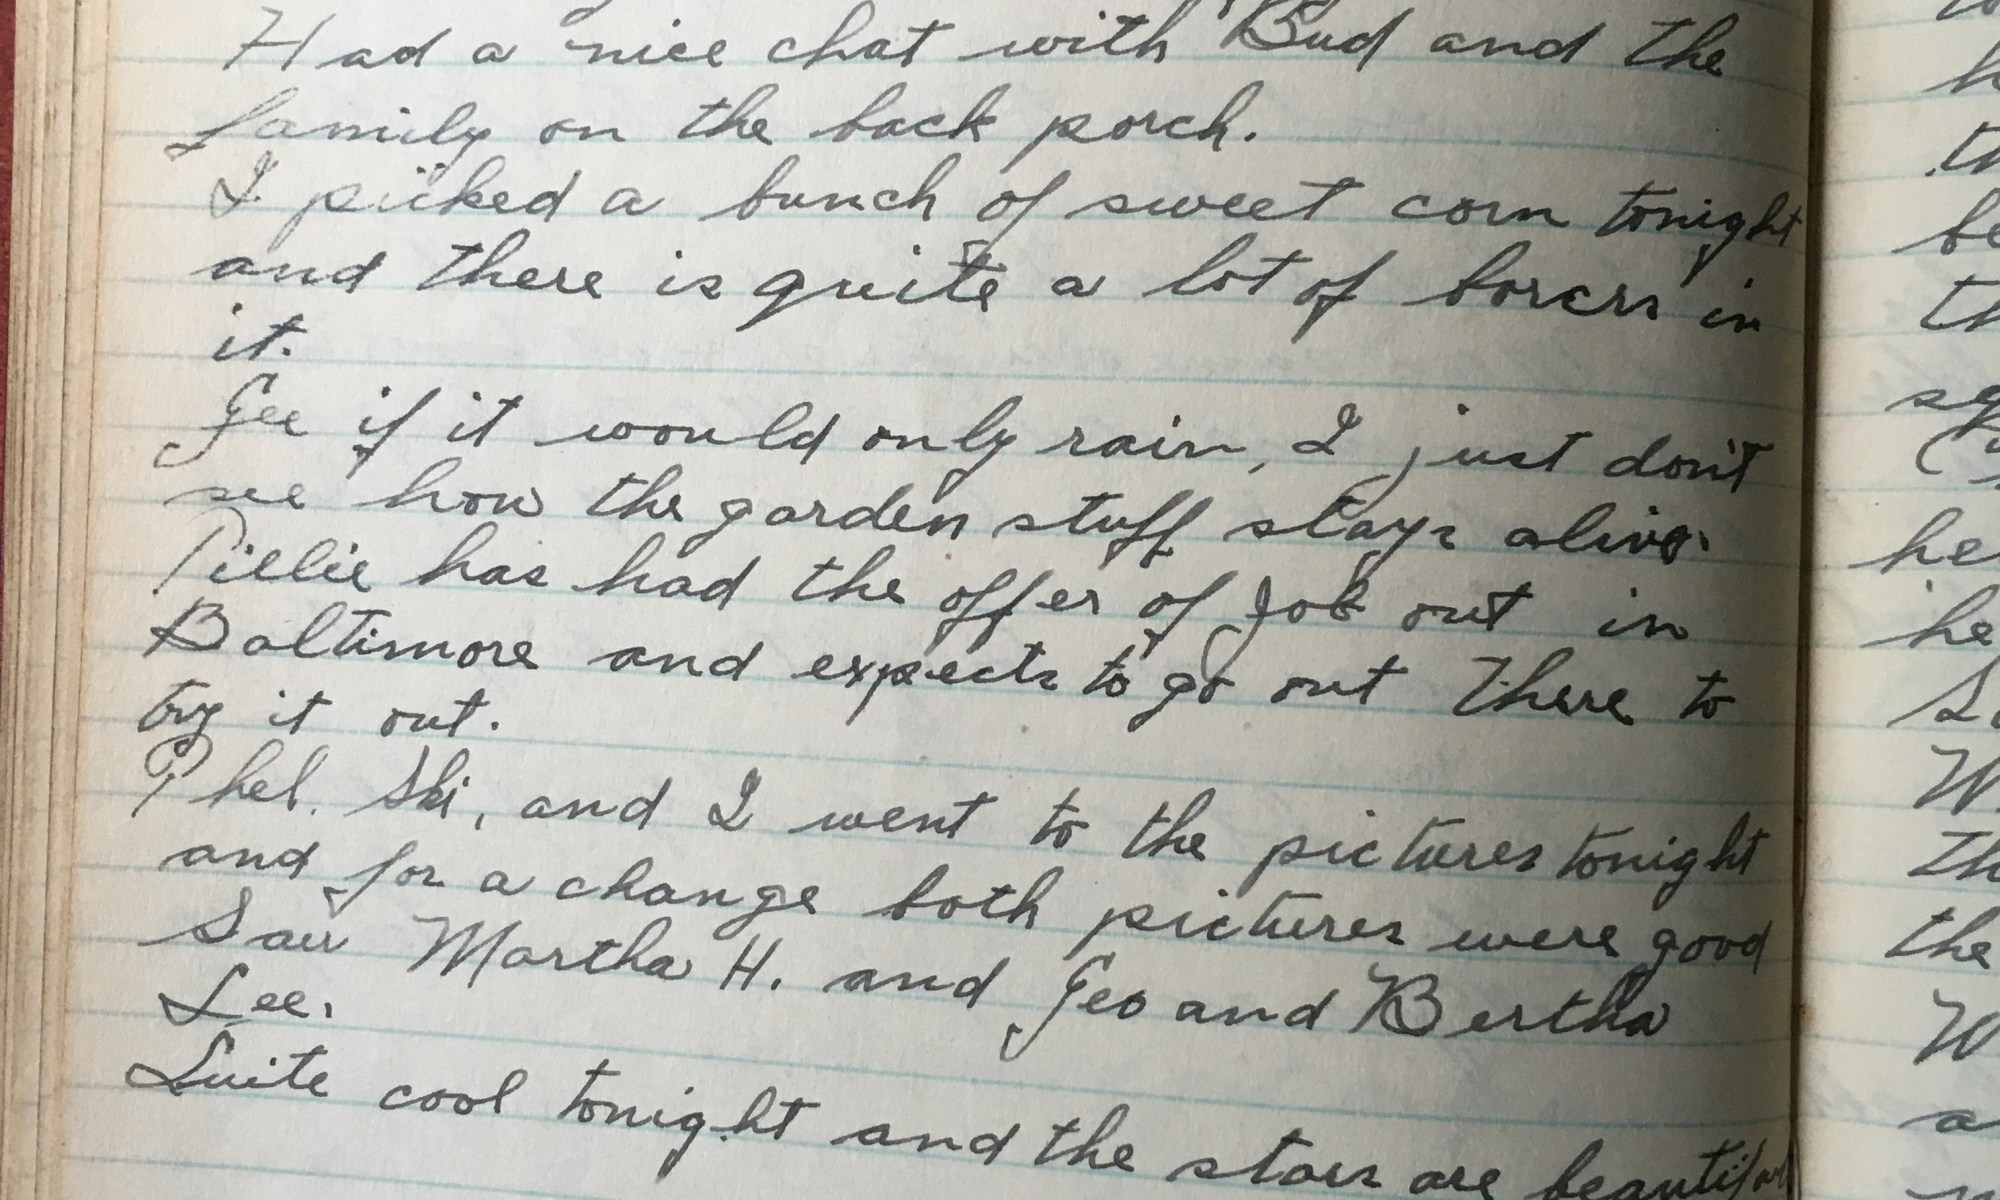 Had a nice chat with Bud and the
family on the back porch.
I picked a bunch of sweet corn tonight
and there is quite a lot of borers in
it.
Gee if it would only rain, I just don't
see how the garden stuff stays alive.
Pillie has had the offer of job out in
Baltimore and expects to go out there to
try it out.
Phel. Ski, and I went to the pictures tonight
and for a change both pictures were good
Saw Martha H. and Geo and Bertha
Lee.
Quite cool tonight and the stars are beautiful